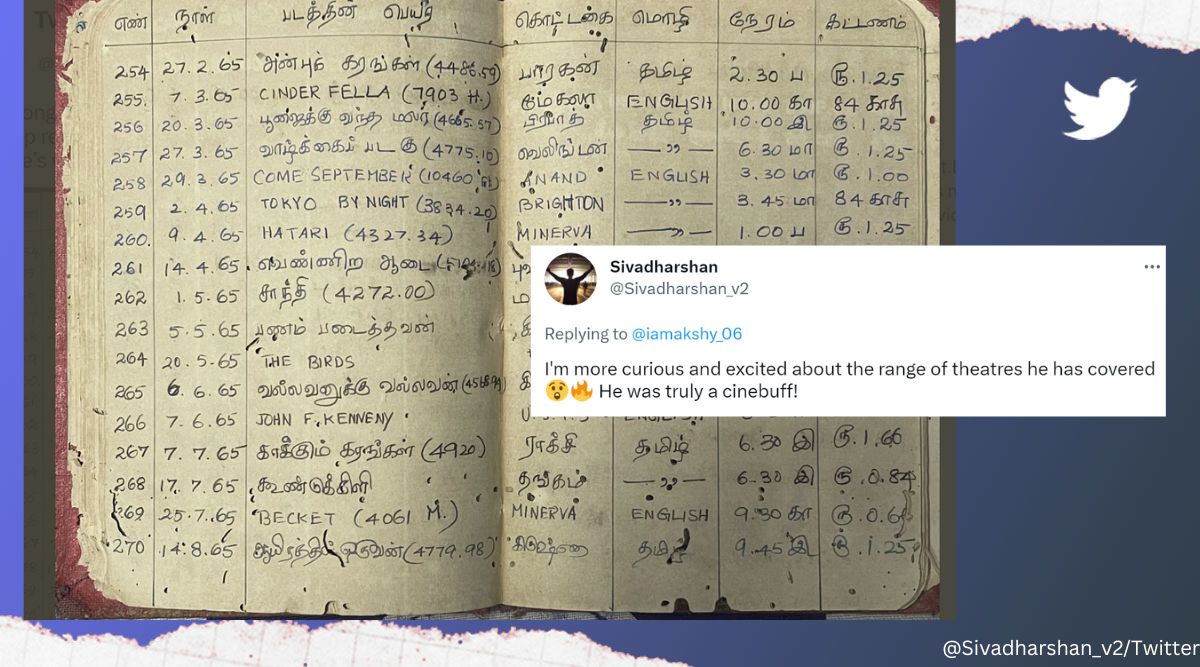 எண் நாள் படத்தின் பெயர் கொட்டகை மொழி நேரம் கட்டணம்
254 27.2.65 அன்புக் கரங்கள் (4486.59) பாரகன் தமிழ் 2.30 ப ரூ.1.25
255. 7.3.65 CINDER FELLA (7903 ft.) ENGLISH 10.00 கா 84 காசு
256 20.3.65 பூஜைக்கு வந்த மலர் (4665.57) பிரபாத் தமிழ் 10.00 இ ரூ.1.25
257 27.3.65 வாழ்க்கைப் படகு (4775.10) வெலிங்டன் —,,— 6.30 மா ரூ.1.25
258 29.3.65 COME SEPTEMBER (10460 ft) ANAND ENGLISH 3.30 மா ரூ.1.00
259 2.4.65 TOKYO BY NIGHT (3834.20) BRIGHTON —,,— 3.45 மா 84 காசு
260. 9.4.65 HATARI (4327.34) MINERVA —,,— 1.00 ப ரூ.1.25
261 14.4.65. வெண்ணிற ஆடை
262 1.5.65 சாந்தி (4272.00)
263 5.5.65 பணம் படைத்தவன்
264 20.5.65 THE BIRDS
265 6.6.65 வல்லவனுக்கு வல்லவன்
266 7.6.65 JOHN F. KENNENY
267 7.7.65 காக்கும் கரங்கள் (4920) ராக்சி தமிழ் 6.30 இ ரூ.1.60
268 17.7.65 கூண்டுக்கிளி தங்கம் —,,— 6.30 இ ரூ.0.84
269 25.7.65 BECKET (4061 M.) MINERVA ENGLISH 9.30 கா
270 14.8.65 ஆயிரத்தில் ஒருவன் (4779.98) கிருஷ்ணா தமிழ் 9.45 இ ரூ.1.25
Sivadharshan
@Sivadharshan_v2
Replying to @iamakshy_06
I'm more curious and excited about the range of theatres he has covered
😲🔥 He was truly a cinebuff!
@Sivadharshan_v2/Twitter